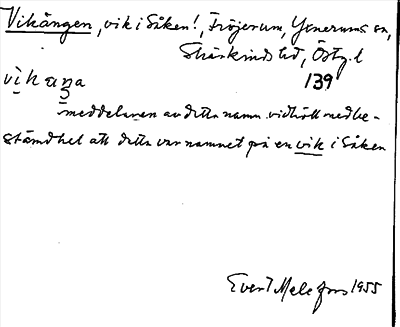 Vikängen, vik i Såken!, Fröjerum, Yxnerums sn,
Skärkinds hd, Östg. l
139
meddelaren av detta namn vidhöll med be-
stämdhet att detta var namnet på en vik i Såken
Evert Melefors 1955